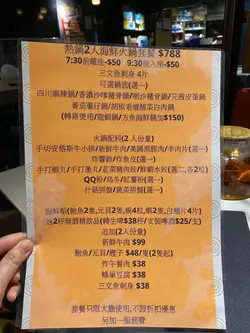 熱鍋2人海鮮火鍋套餐 $788
7:30前離座-$50 9:30後入座-$50
三文魚刺身 4片
可選湯底(選一)
四川麻辣鍋/香濃沙嗲豬骨鍋/椒沙豬骨鍋/花膠皮蛋鍋
蕃茄薯仔鍋/胡椒老壇酸菜白肉鍋
(轉雞煲用/龍蝦鍋/方魚海鮮鍋加$150)
火鍋配料(2 人份量)
手切安格斯牛小排/新鮮牛肉/美國黑豚肉/羊肉片(選一)
炸響鈴/炸魚皮(選一)
手打蝦丸/手打墨丸/韮菜豬肉餃/鮮蝦水餃(選二,各2粒)
QQ粉/烏冬/紅薯粉(選一)
什菇拼盤/蔬菜拼盤(選一)
2隻,元貝2隻,蝦4粒,蜆2隻,白鱔片4片)
追加(2人份量)
新鮮牛肉 $99
鮑魚/元貝/蟶子 $48/隻(2隻起)
炸午餐肉 $38
蜂巢豆腐 $38
三文魚刺身 $38
套餐只限大廳使用,不設折扣優惠
另加一服務費